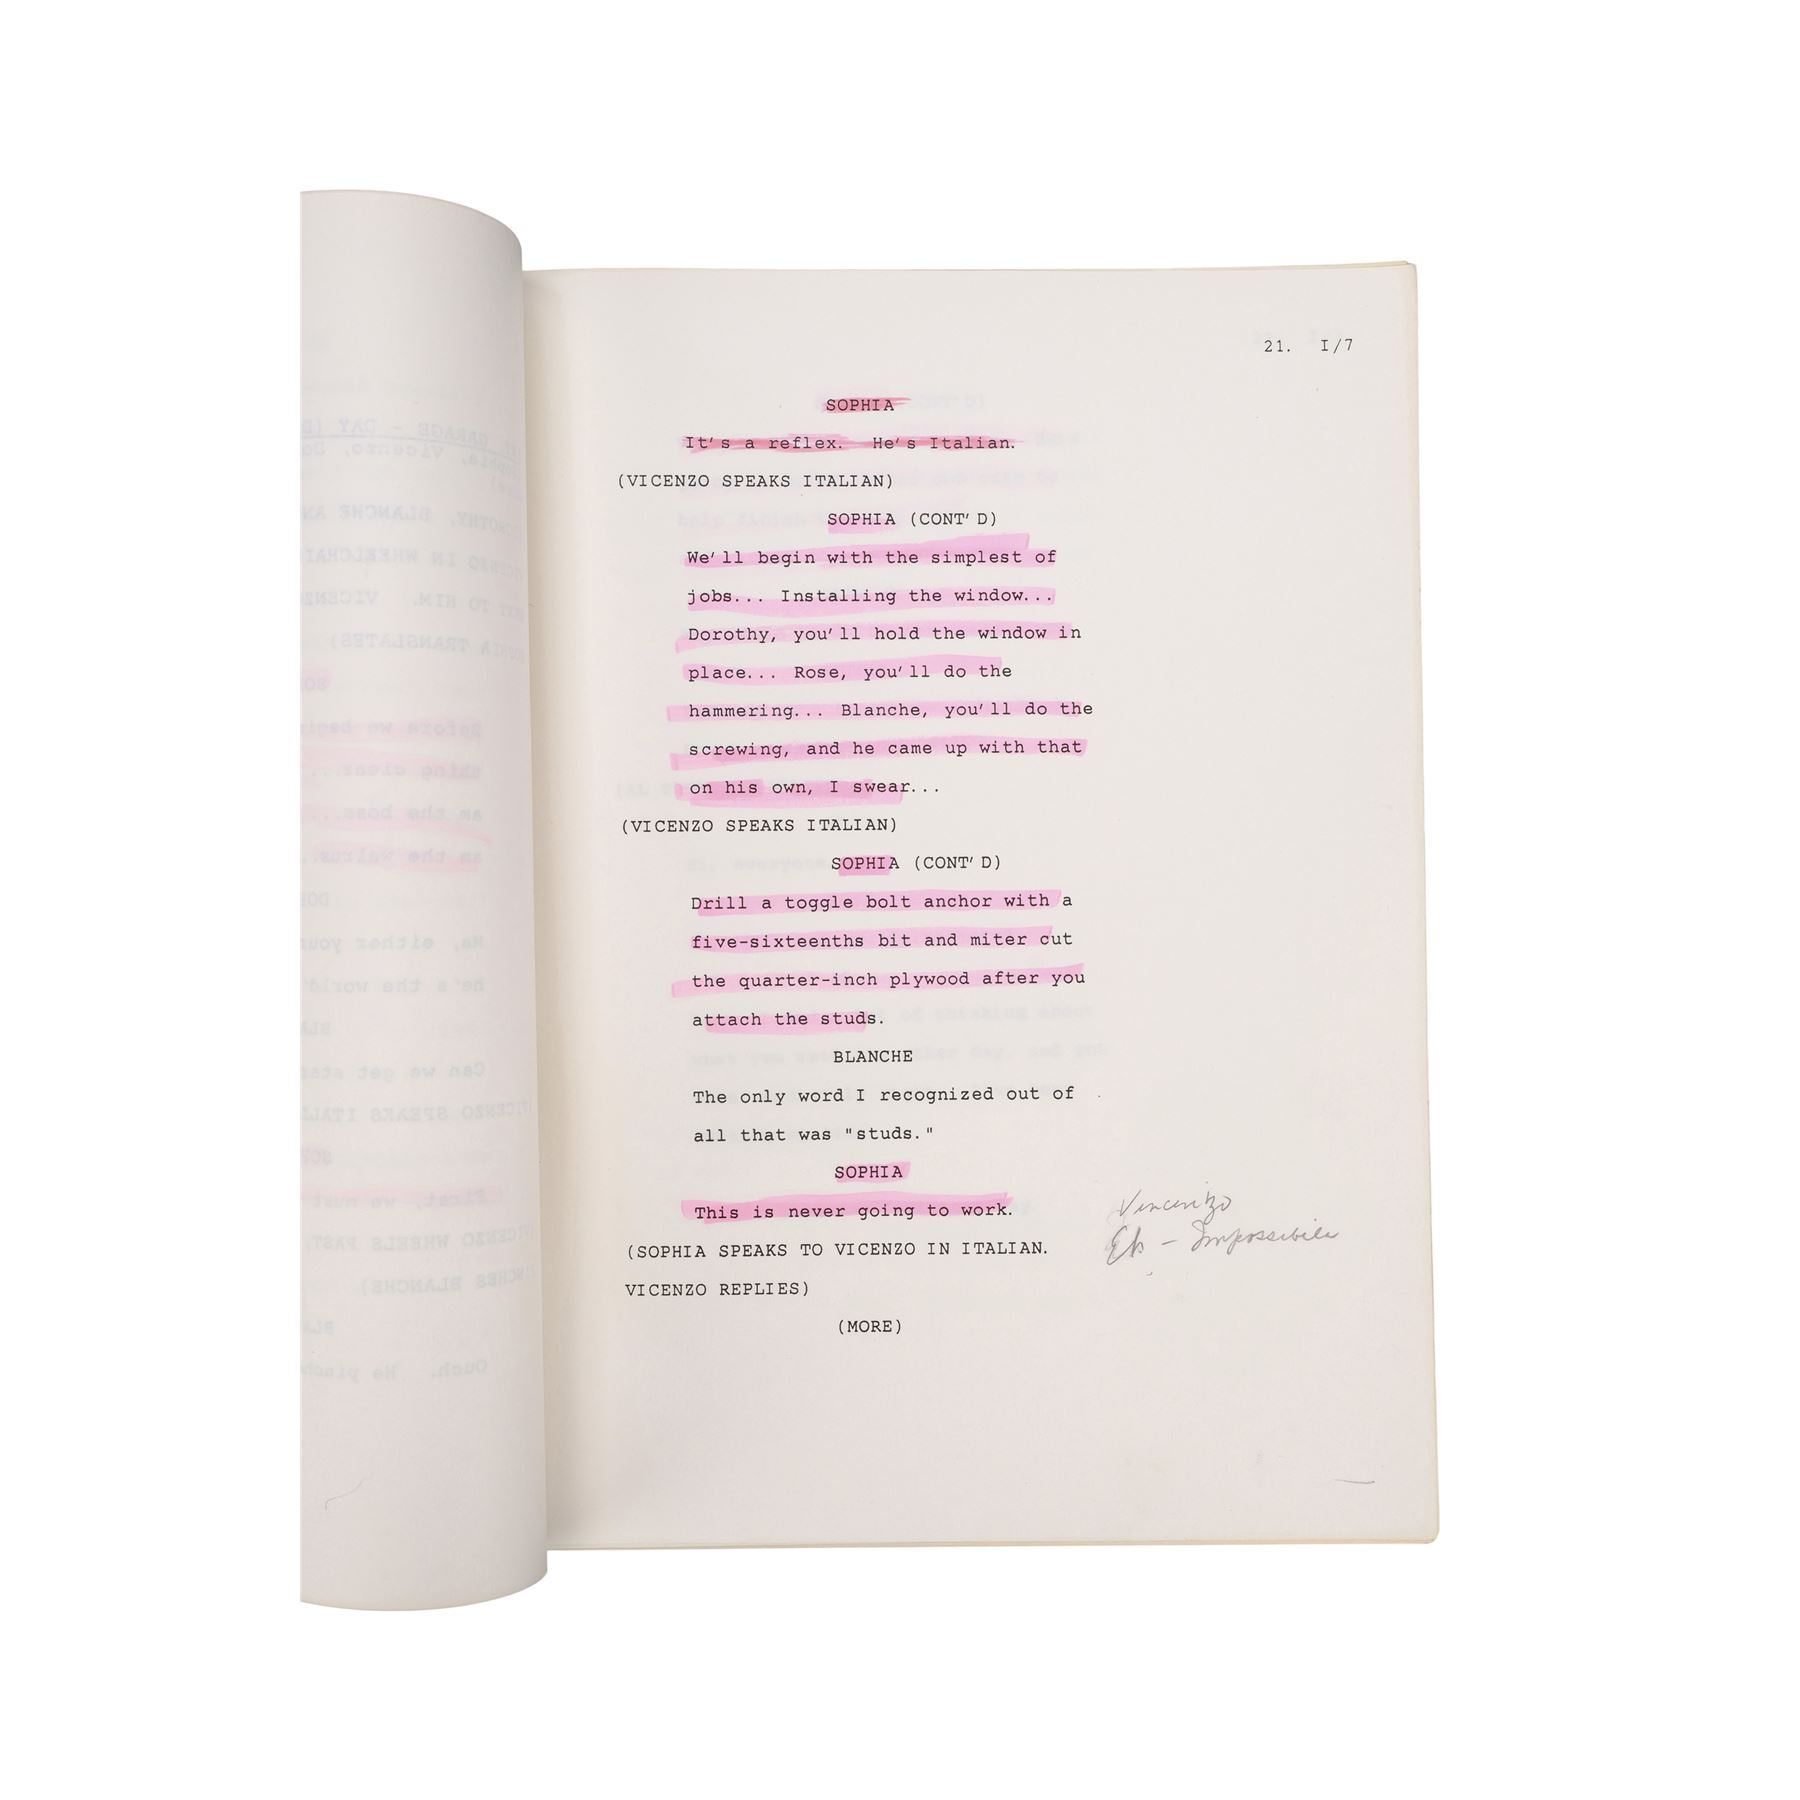 21. I/7
SOPHIA
It's a reflex. He's Italian.
(VICENZO SPEAKS ITALIAN)
SOPHIA (CONT'D)
We'll begin with the simplest of
jobs... Installing the window...
Dorothy, you'll hold the window in
place... Rose, you'll do the
hammering... Blanche, you'll do the
screwing, and he came up with that
on his own, I swear...
(VICENZO SPEAKS ITALIAN)
SOPHIA (CONT'D)
Drill a toggle bolt anchor with a
five-sixteenths bit and miter cut
the quarter-inch plywood after you
attach the studs.
BLANCHE
The only word I recognized out of
all that was "studs."
SOPHIA
This is never going to work.
Vincenzo
Eh - Impossibile
(SOPHIA SPEAKS TO VICENZO IN ITALIAN.
VICENZO REPLIES)
(MORE)